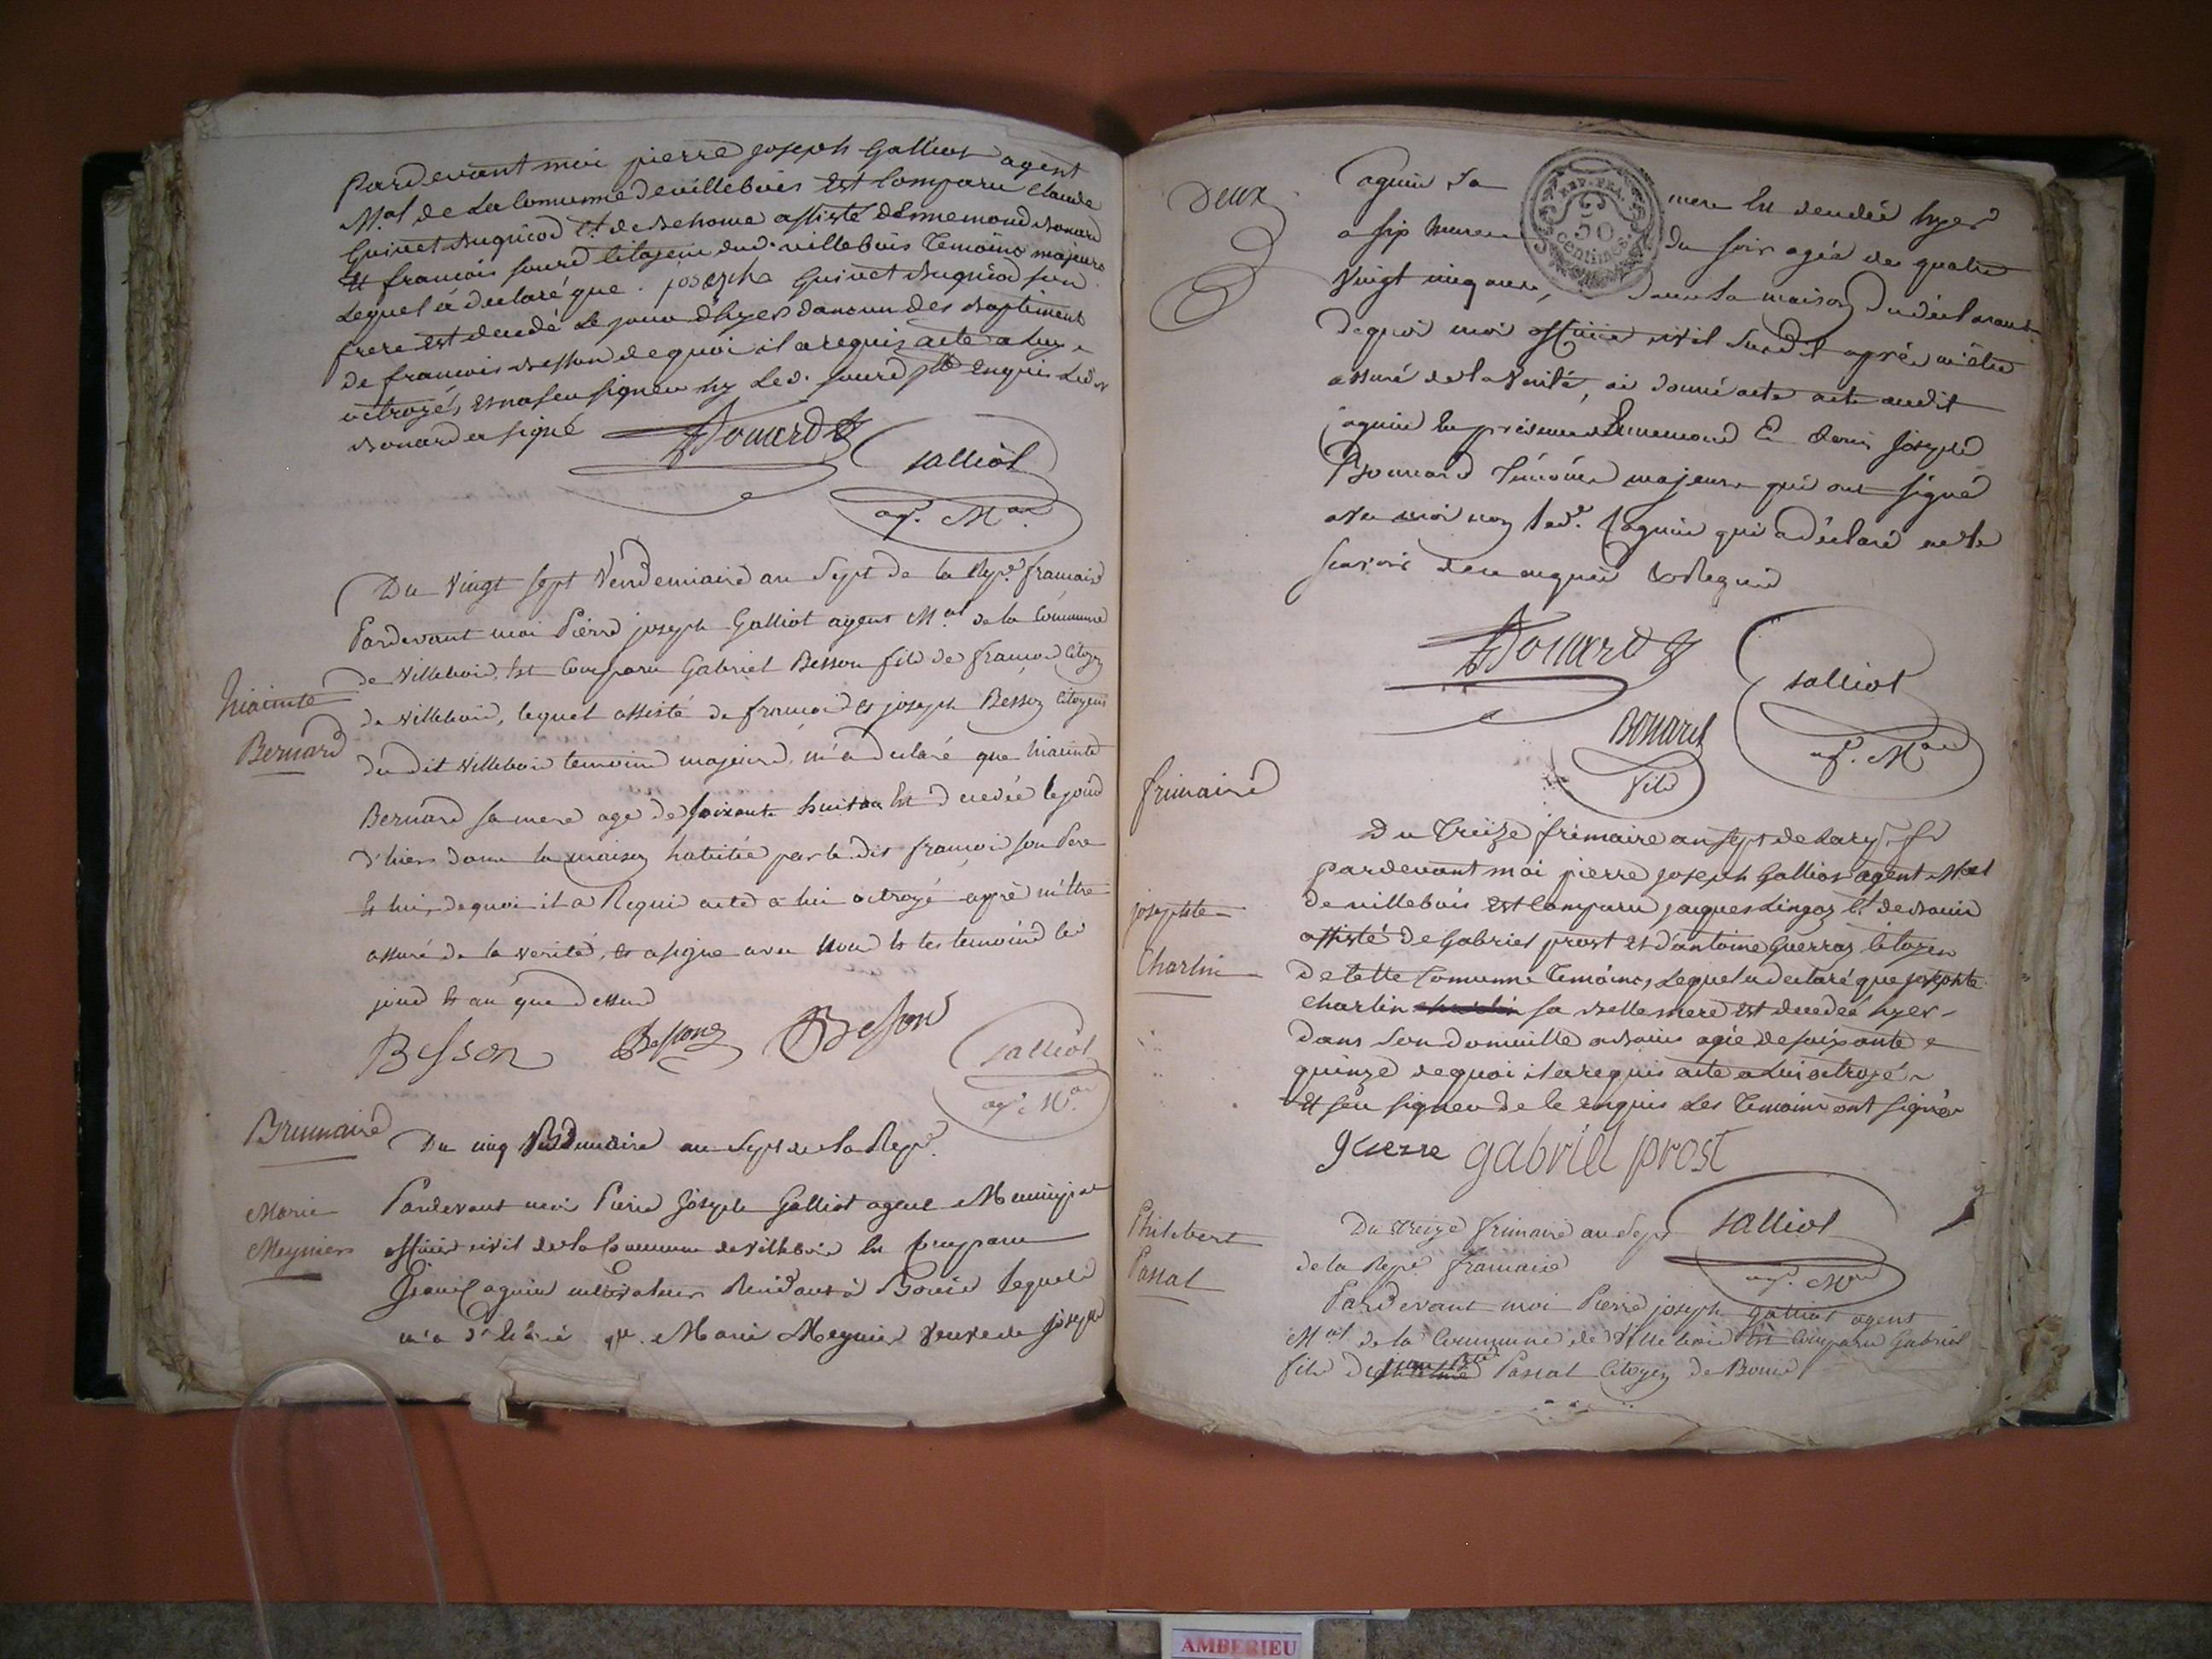 pardevant moi pierre joseph Galliot agent
M.al de La Commune de villebois est Comparu Claude
Guinet Buqricod C.t de Behome assisté dennemond Bonard
et francois sourd Citoyen dud. villebois Temoins majeurs
Lequel à declaré que joseph Guinet Buqricod son
frere est decedé Le jour d'hyer dans un des Baptiment
de francois Besson de quoi il a requis acte a luy
octroyé, et na seu signer ny Led. sourd enquis Led.
Bonard a signé
Bonard
Galliot
ag. M.al
Du Vingt sept Vendemiaire an Sept de la Rep.e francaise
Pardevant moi Pierre joseph Galliot agent M.al de la Commune
de Villebois, Est Comparu Gabriel Besson fils de francois Citoyen
hiacinte
Bernard
de Villebois, lequel assisté de francois et joseph Besson Citoyens
du dit Villebois temoins majeurs, m'a declaré que hiacinte
Bernard sa mere age de soixante huit an Est decedée le jour
d'hier dans la maison habitée par le dit francois son Pere
Et lui, de quoi il a Requis acte a lui octroyé apprè m'être
assuré de la verité, et a signe avec nous Et les temoins les
jour Et an que dessus
Besson Besson Besson
Galliot
ag. M.al
Brumaire
Du cinq Brumaire an Sept de la Rep.e
Marie
Meynier
Pardevant moi Pierre Joseph Galliot agent Municipal
officier civil de la Commune de Villebois Est Comparu
cultivateur Residant à Bouis lequel
m'a déclaré que Marie Meynier veuve de Joseph
Deux
REP. FRA.
50
centimes.
Caguin sa mere Est decedée hyer
a six heures du soir agée de quatre
Vingt cinq ans, dans la maison du déclarant
de quoi moi officier civil susdit après m'être
assuré de la Verité, ai donné acte acte audit
Caguin En présence d'Ennemond Et Denis Joseph
Bonnard témoins majeurs qui ont signé
avec moi non led.t Caguin qui a déclaré ne le
scavoir de ce enquis & Requis
Bonard
Bonard
fils
Galliot
ag. M.al
frimaire
Du Treize frimaire an sept de la rep. fr
pardevant moi pierre joseph Galliot agent M.al
josephte
Charlin
de villebois est Comparu jacques Lingoz C.t de Bouis
assisté de Gabriel prost et d'antoine Guerraz Citoyen
de Cette Commune Temoins, Lequel a declaré que josephte
Charlin sa Belle mere est decedée hyer
dans son domicille a Bouis agée de soixante
quinze de quoi il a requis acte a Lui octroyé
et seu signer de le enquis Les Temoins ont signé
guerre gabriel prost
Galliot
ag. M.al
Philibert
Pascal
Du treize frimaire an Sept
de la Rep.e francaise
Pardevant moi Pierre joseph Galliot agent
M.al de la Commune de Villebois Est Comparu Gabriel
fils de Pascal Citoyen de Bouis
AMBERIEU